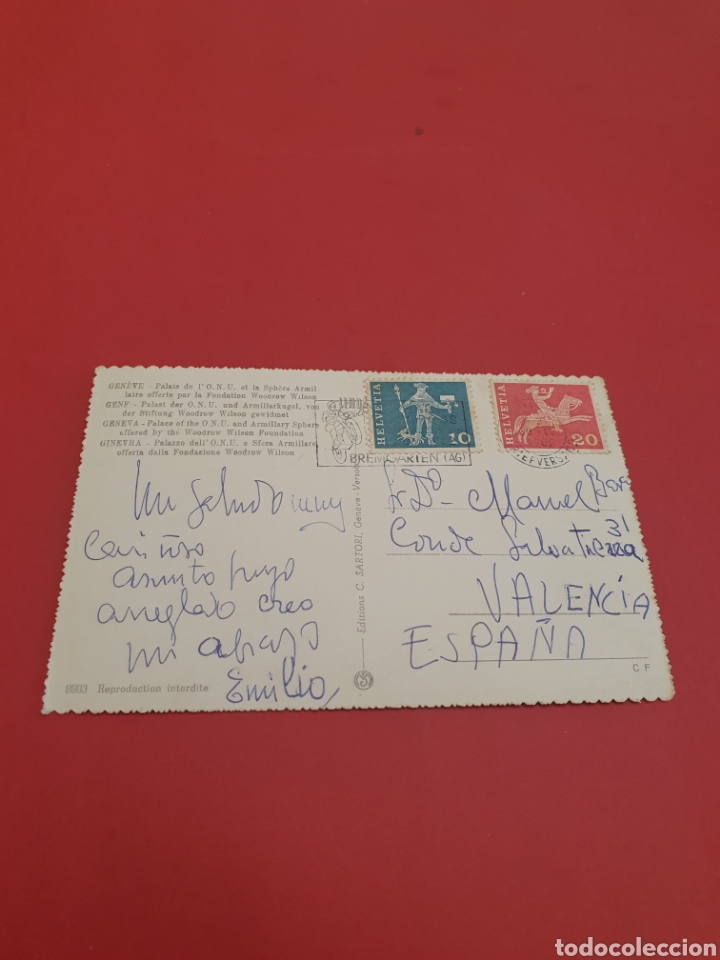 GENÈVE - Palais de l'O.N.U. et la Sphère Armil
laire offerte par la Fondation Woodrow Wilson
GENF - Palast der O.N.U. und Armillarkugel, von
der Stiftung Woodrow Wilson gewidmet
GENEVA - Palace of the O.N.U. and Armillary Sphere
offered by the Woodrow Wilson Foundation
GINEVRA - Palazzo dell'O.N.U. e Sfera Armillare
offerta dalla Fondazione Woodrow Wilson
Un saludo muy
cariñoso
asunto
arreglado creo
un abrazo
Emilio
8603 Reproduction interdite
Editions C. SARTORI, Genève-
HELVETIA
10
HELVETIA
20
BREMGARTEN (AG)
Sr. Do. Manuel
Conde Salvatierra 31
VALENCIA
ESPAÑA
C F
todocoleccion